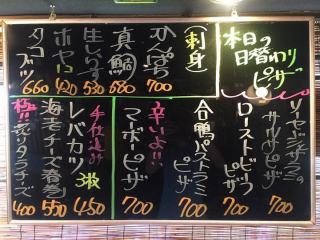 本日の
日替わり
ピザ
サラミの
サルサピザ
700
ローストビーフ
ピザ
700
合鴨パストラミ
ピザ
700
(刺身)
かんぱち
700
真鯛
680
生しらす
530
ホヤ
タコブツ
660
辛いよ!!
マーボーピザ
700
手仕込み
レバカツ 3枚
450
海老チーズ春巻
550
極!!
チーズ
400